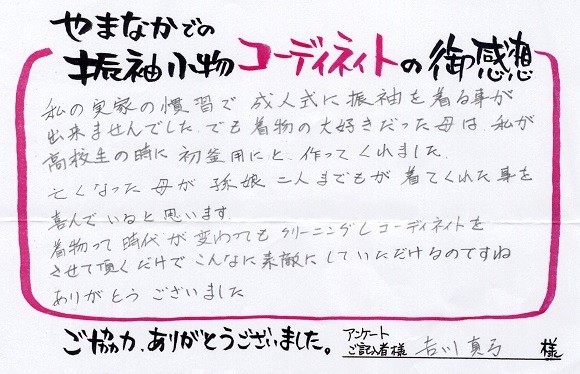 やまなかでの
振袖小物コーディネイトの御感想
私の実家の慣習で成人式に振袖を着る事が
出来ませんでした.でも着物の大好きだった母は.私が
高校生の時に初釜用にと.作ってくれました.
亡くなった母が孫娘二人までもが着てくれた事を
喜んでいると思います.
着物って時代が変わってもクリーニングしコーディネイトを
させて頂くだけでこんなに素敵にしていただけるのですね
ありがとうございました
ご協力、ありがとうございました。
アンケート
ご記入者様 吉川真弓 様